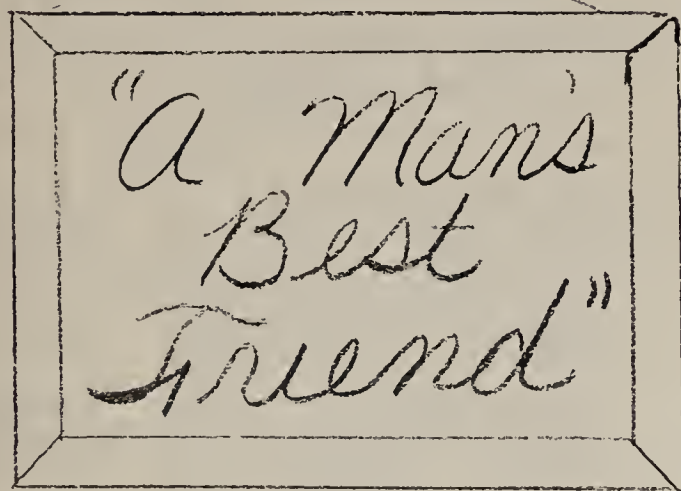 "A Man's
Best
Friend"